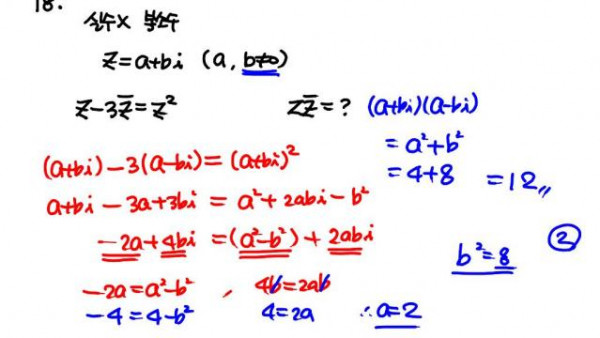 18.
실수X 복소수
z=a+bi (a, b≠0)
z-3z̄=z² zz̄=? (a+bi)(a-bi)
= a²+b²
= 4+8 =12〃
(a+bi)-3(a-bi)=(a+bi)²
a+bi-3a+3bi = a²+2abi-b²
-2a+4bi =(a²-b²)+2abi
b²=8 ②
-2a=a²-b² , 4b=2ab
-4=4-b² 4=2a ∴a=2